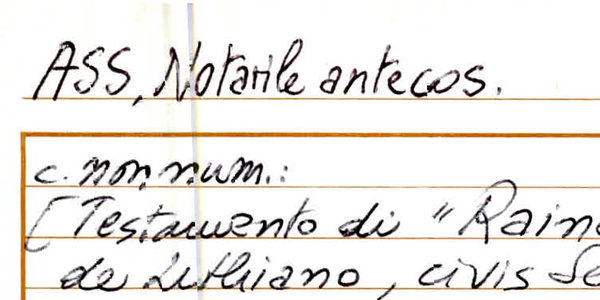 ASS, Notarile antecos.
c. non num.:
[Testamento di "Raine
de Lithiano, civis Se